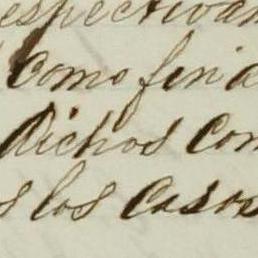 espectivam
Como fin a
dichos Con
s los Casos